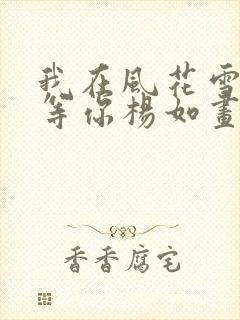 我在風花雪
等你楊如畫
香香腐宅